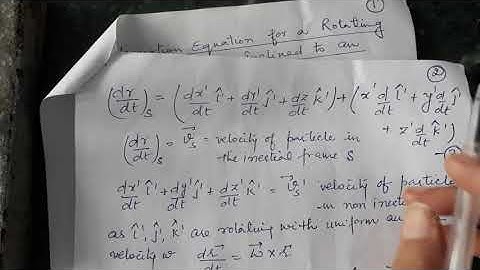 ①
Equation for a Rotating
inclined to an
②
(dr/dt)_S = (dx'/dt î' + dy'/dt ĵ' + dz/dt k̂') + (x' d/dt î' + y' d/dt ĵ'
+ z' d/dt k̂')
(dr/dt)_S = v⃗_S = velocity of particle in
the inertial frame S
dx'/dt î' + dy'/dt ĵ' + dz'/dt k̂' = v⃗_S' velocity of particle
in non
as î', ĵ', k̂' are rotating with uniform
velocity w dr⃗/dt = w⃗ × r⃗